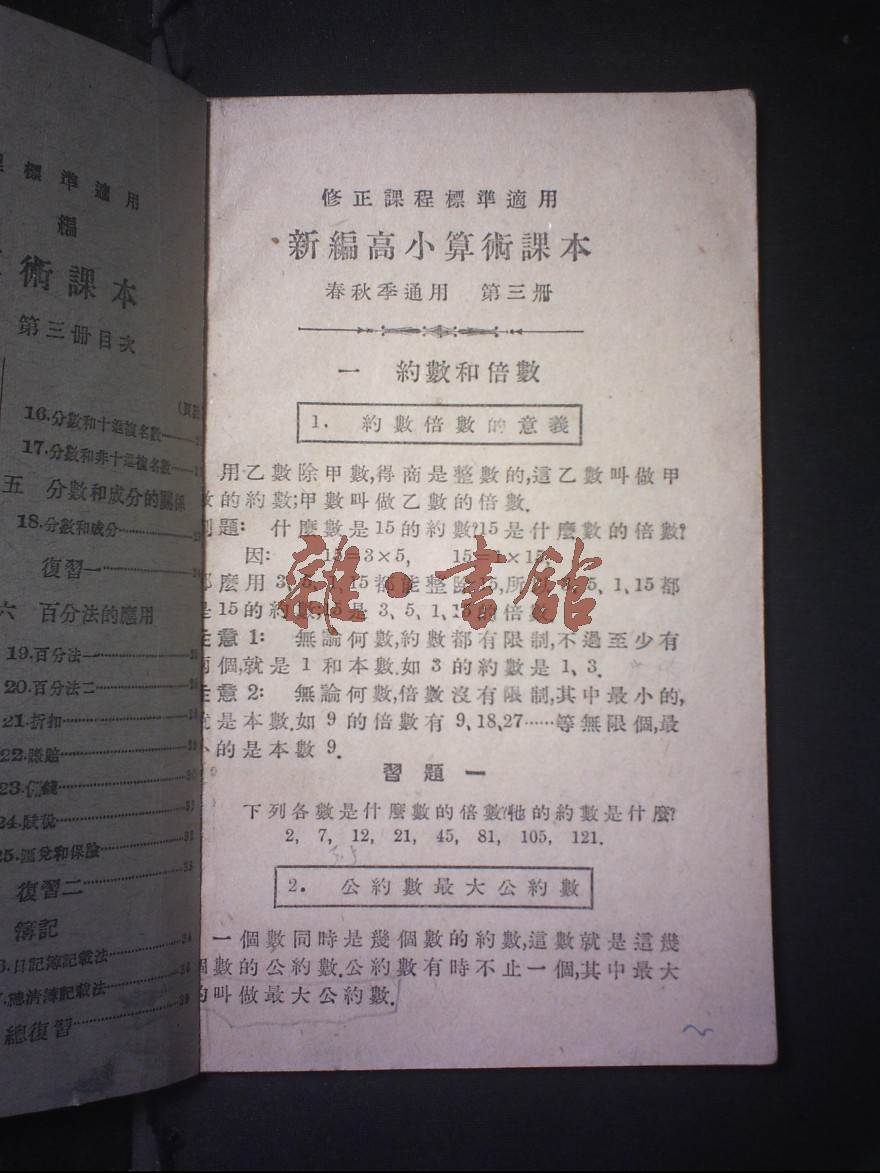 程標準適用
編
術課本
第三冊目次
16.分數和十進複名數
17.分數和非十進複名數
五 分數和成分的關係
18.分數和成分
復習一
六 百分法的應用
19.百分法一
20.百分法二
21.折扣
22.賺賠
23.佣錢
24.賦稅
25.匯兌和保險
復習二
簿記
日記簿記載法
總清簿記載法
總復習
修正課程標準適用
新編高小算術課本
春秋季通用 第三册
一 約數和倍數
1. 約數倍數的意義
用乙數除甲數,得商是整數的,這乙數叫做甲
數的約數;甲數叫做乙數的倍數.
例題: 什麼數是15的約數?15是什麼數的倍數?
因: 15=3×5, 15=1×15,
那麼用3、5、1、15都能整除15,所以3、5、1、15都
是15的約數;15是3、5、1、15的倍數
注意1: 無論何數,約數都有限制,不過至少有
兩個,就是1和本數.如3的約數是1、3.
注意2: 無論何數,倍數沒有限制,其中最小的,
就是本數.如9的倍數有9、18、27……等無限個,最
小的是本數9.
習題一
下列各數是什麼數的倍數?牠的約數是什麼?
2, 7, 12, 21, 45, 81, 105, 121.
2. 公約數最大公約數
一個數同時是幾個數的約數,這數就是這幾
個數的公約數.公約數有時不止一個,其中最大
的叫做最大公約數.
雜·書館